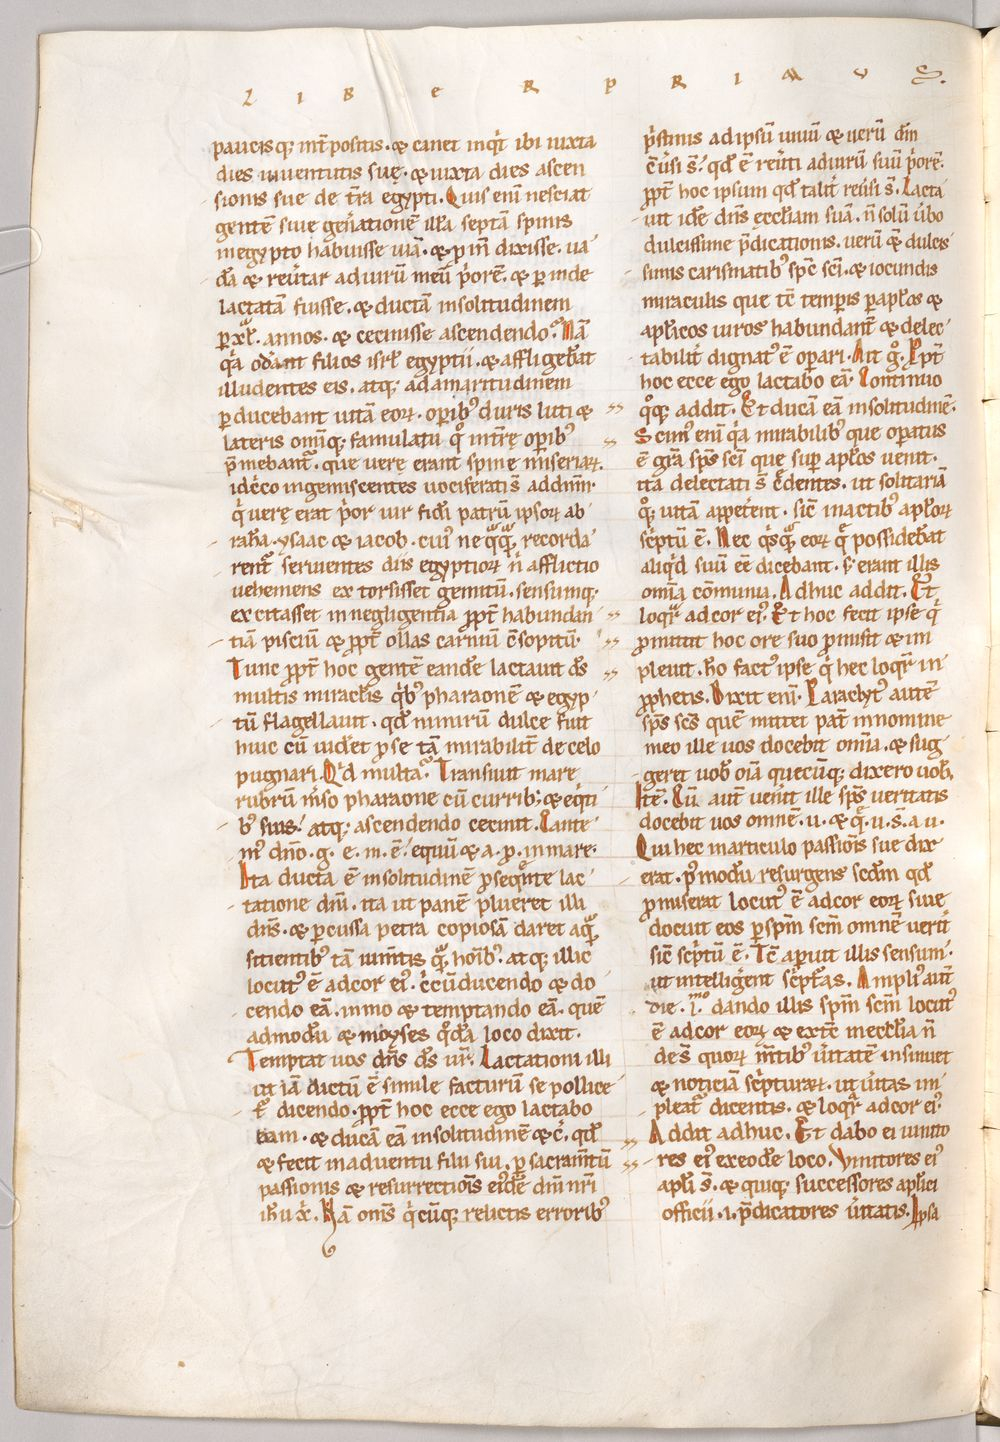 LIBER PRIMUS.
paucisq; int̄ positis. & canet inq̇t ibi iuxta
dies iuuentutis suę. & iuxta dies ascen
sionis sue de t̄ra egypti. Quis eni᷑ nesciat
gentē siue gen̄ationē illā septā spinis
inegypto habuisse uiā. & p in̄ dixisse. ua
dā & reu̇tar aduirū meū ṗorē. & p inde
lactatā fuisse. & ductā insolitudinem
p xl. annos. & cecinisse ascendendo. Nā
q̇a oderant filios isrl̄ egyptii. & affligebāt
illudentes eis. atq; adamaritudinem
pducebant uitā eorꝝ. opib᷒ duris luti &
lateris omīq; famulatu q̊ int̄rę opib᷒
p̄mebant᷑. que uerę erant spinę miseriarꝝ.
idc̄co ingemiscentes uociferati s̄ addn̄m.
q̇ uerę erat ṗor uir fidī patrū ipsoꝝ ab
rahā. ysaac & iacob. cui᷒ neqᵃqᵃ recorda
rent᷑ seruientes diis egyptioꝝ n̄ afflictio
uehemens extorsisset gemitū. sensumq;
excitasset innegligentia ꝓpt̄ habundan
tiā pisciū & ꝓpt̄ ollas carniū c̄sopitū.
Tunc ꝓpt̄ hoc gentē eandē lactauit ds̄
multis miraclis q̇b᷒ pharaonē & egyp
tū flagellauit. qd̄ nimirū dulce fuit
huic cū uidet ꝓse tā mirabilit̄ decelo
pugnari. Qd multa᷑. Transiuit mare
rubrū iṁso pharaone cū currib; & eq̇ti
b᷒ suis. atq; ascendendo cecinit. Cante
m᷒ dn̄o. g. e. m. ē. equū & a. p. inmare.
Ita ducta ē insolitudinē ꝓsequente lac
tatione dn̄i. ita ut panē plueret illi
dn̄s. & pcussa petra copiosā daret aqᵃ
sitientib᷒ tā iumtis qᵃ hoīb᷒. atq; illic
locut᷒ ē adcor ei᷒. c̄cūducendo & do
cendo eā. immo & temptando eā. quē
admodū & moyses qdā loco dixit.
Temptat uos dn̄s ds̄ ur̄. Lactationi illi
ut iā dictū ē simile facturū se pollice
t᷑ dicendo. ꝓpt̄ hoc ecce ego lactabo
eam. & ducā eā insolitudinē & c̄. qd̄
& fecit inaduentu filii sui. p sacram̄tū
passionis & resurrectiōis ei᷒dē dn̄i nr̄i
ih̄u x̄. Nā om̄s q̇cūq; relictis errorib᷒
p̄stinis adipsū unū & uerū dm̄
c̄u̇si s̄. qd̄ ē reu̇ti aduirū suū ṗorē.
ꝓpt̄ hoc ipsum qd̄ talit̄ reu̇si s̄. Lacta
uit idē dn̄s eccl̄iam suā. n̄ solū u̇bo
dulcissime p̄dicationis. uerū & dulcis
simis carismatib᷒ sp̄c sc̄i. & iocundis
miraculis que tc̄ tempis papl̄os &
apl̄icos uiros habundant̄ & delec
tabilit̄ dignat᷒ ē opari. Ait g̊. Ppt̄
hoc ecce ego lactabo eā. Continuo
q̊q; addit. Et ducā eā insolitudinē.
Scim᷒ eni᷑ q̇a mirabilib᷒ que opatus
ē gr̄a sp̄s sc̄i que sup apl̄os uenit.
itā delectati s̄ c̄dentes. ut solitariā
q̊q; uitā appetent. sic̄ inactib᷒ apl̄oꝝ
sc̄ptū ē. Nec q̇sqᵃ eoꝝ q̄ possidebāt
aliq̇d suū ēē dicebant. s; erant illis
om̄ia cōmunia. Adhuc addit. Et
loqr̄ adcor ei᷒. Et hoc fecit ipse q̇
ꝓmittit hoc ore suo ꝓmisit & im
pleuit. h̊o fact᷒ ipse q̇ hec loqr̄ in
ꝓphetis. Dixit eni᷑. Paraclyt᷒ autē
sp̄s sc̄s quē mittet pat̄ innomine
meo ille uos docebit om̄ia. & sug
geret uob̄ oīa quecūq; dixero uob̄.
Itē. Cū aut̄ uen̄it ille sp̄s ueritatis
docebit uos omnē. u. & q̄. u. s̄. a. u.
Qui hec inarticulo passiōis sue dix
erat. pmodū resurgens scdm̄ qd̄
ꝓmiserat locut᷒ ē adcor eoꝝ siue
docuit eos p sp̄m sc̄m omnē uerit̄
sic̄ sc̄ptū ē. Tc̄ apuit illis sensum.
ut intelliġent sc̄pt̄as. Ampli᷒ aut̄
die. l.ᵐᵒ dando illis sp̄m sc̄m locut᷒
ē adcor eoꝝ & extē ineccl̄ia n̄
de s̄ quoꝝ m̄tib᷒ u̇itatē insinuet
& noticiā sc̄pturaꝝ. ut u̇itas im
pleat᷑ dicentis. & loqr̄ adcor ei᷒.
Addit adhuc. Et dabo ei uinito
res ei᷒ exeodē loco. Vinitores ei᷒
apl̄i s̄. & quiq; successores apl̄ici
officii .i. p̄dicatores u̇itatis. Ipsa